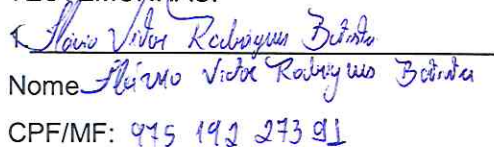 TESTEMUNHAS:
1. Flávio Victor Rodrigues Batista
Nome Flávio Victor Rodrigues Batista
CPF/MF: 975 192 273 91